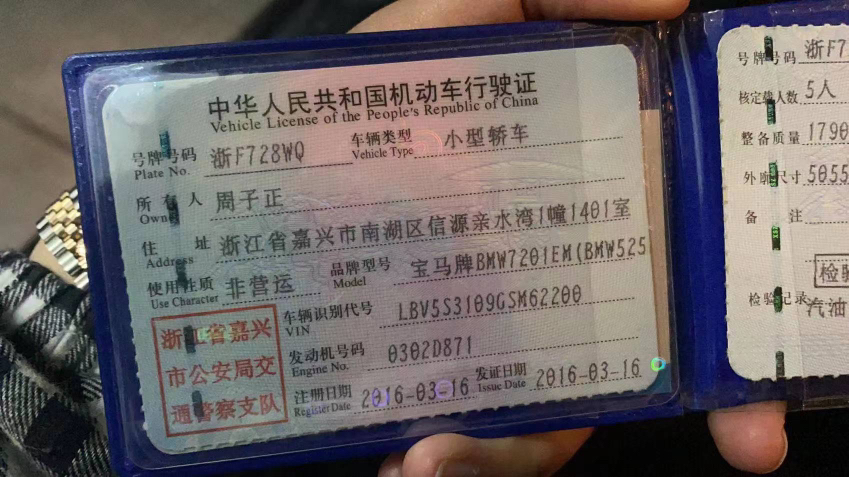 中华人民共和国机动车行驶证
Vehicle License of the People's Republic of China
号牌号码 浙F728WQ 车辆类型 小型轿车
Plate No. Vehicle Type
所有人 周子正
Owner
住址 浙江省嘉兴市南湖区信源亲水湾1幢1401室
Address
使用性质 非营运 品牌型号 宝马牌BMW7201EM(BMW525
Use Character Model
浙江省嘉兴
市公安局交
通警察支队
车辆识别代号 LBV5S3109GSM62200
VIN
发动机号码 0302D871
Engine No.
注册日期 2016-03-16 发证日期 2016-03-16
Register Date Issue Date
号牌号码 浙F7
核定载人数 5人
整备质量 1790
外廓尺寸 5055
备注
检验
检验记录 汽油